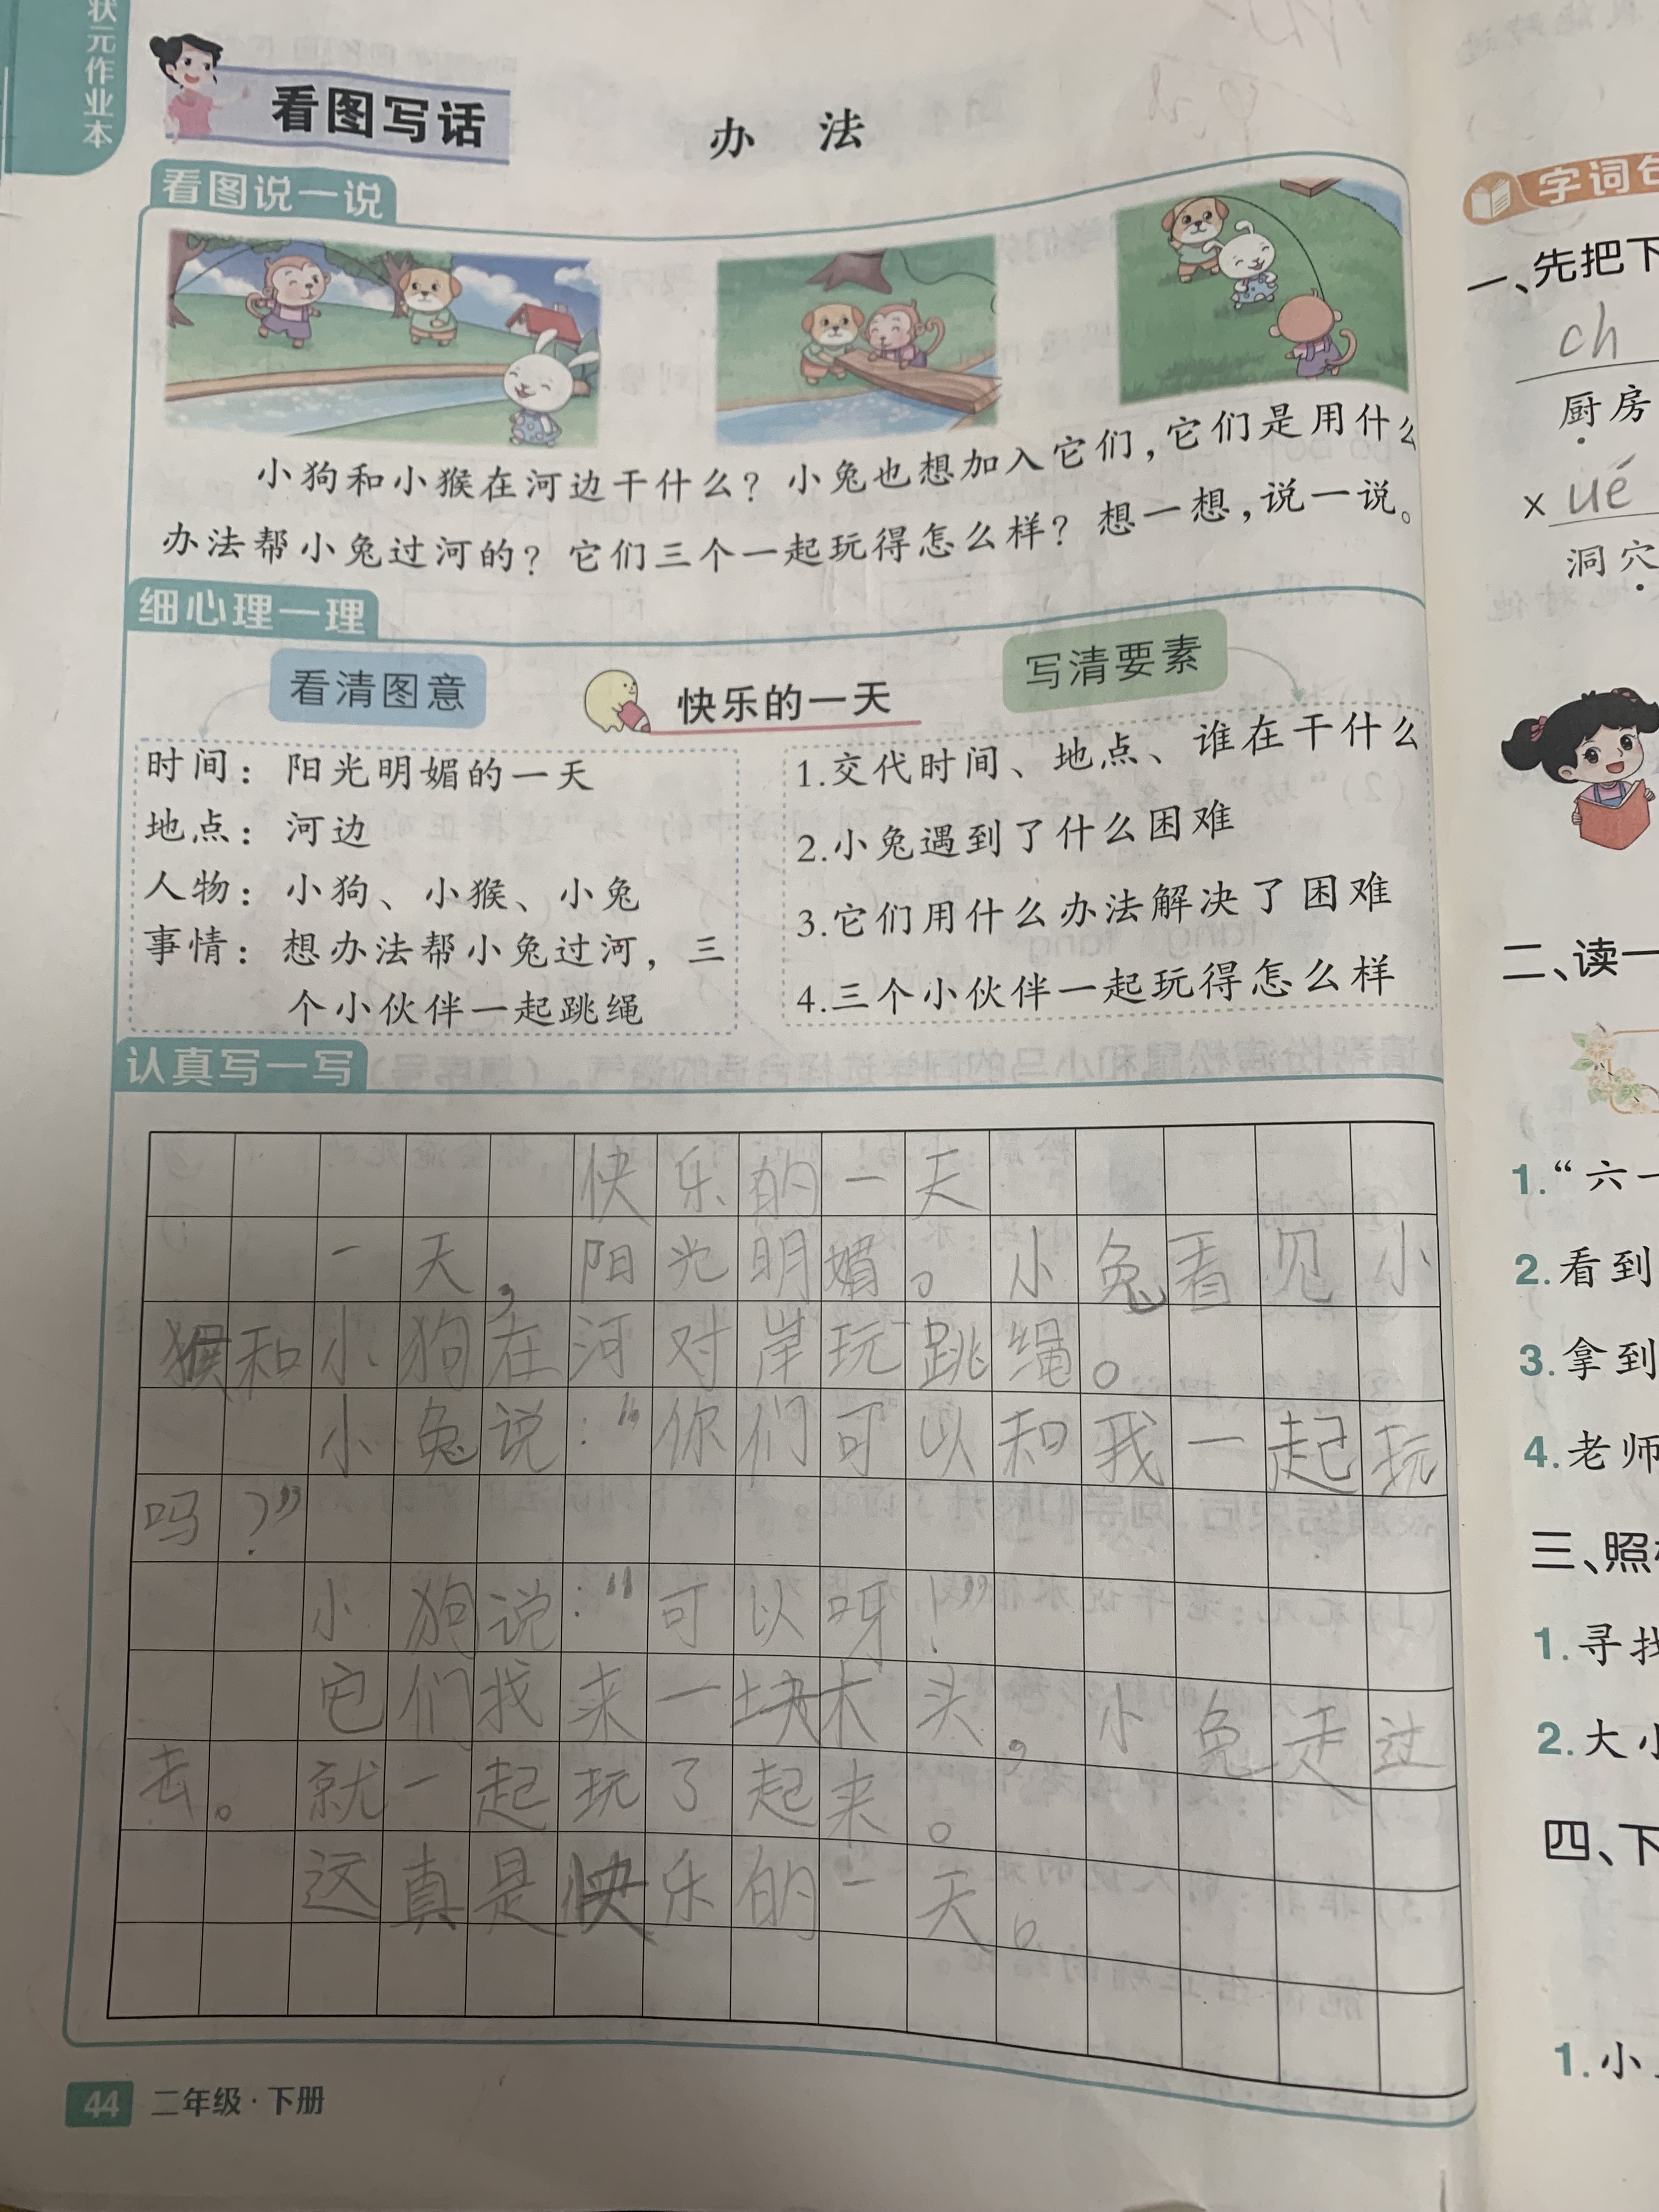 状元作业本
看图写话
办 法
看图说一说
小狗和小猴在河边干什么？小兔也想加入它们，它们是用什么
办法帮小兔过河的？它们三个一起玩得怎么样？想一想，说一说。
细心理一理
看清图意
快乐的一天
写清要素
时间：阳光明媚的一天
地点：河边
人物：小狗、小猴、小兔
事情：想办法帮小兔过河，三
个小伙伴一起跳绳
1.交代时间、地点、谁在干什么
2.小兔遇到了什么困难
3.它们用什么办法解决了困难
4.三个小伙伴一起玩得怎么样
认真写一写
快乐的一天
一天，阳光明媚。小兔看见小
猴和小狗在河对岸玩跳绳。
小兔说：“你们可以和我一起玩
吗？”
小狗说：“可以呀！”
它们找来一块木头，小兔走过
去。就一起玩了起来。
这真是快乐的一天。
44 二年级·下册
字词句
一、先把下
ch
厨房
x ué
洞穴
二、读一
1.“六一
2.看到
3.拿到
4.老师
三、照
1.寻找
2.大小
四、下
1.小